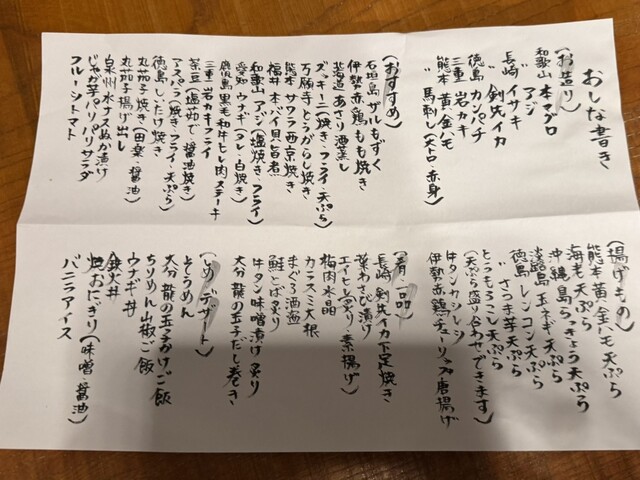 おしな書き
(お造り)
和歌山 本マグロ
〃 アジ
長崎 イサキ
〃 剣先イカ
徳島 カンパチ
三重 岩カキ
熊本 黄金ハモ
〃 馬刺し(大トロ・赤身)
(おすすめ)
石垣島 ザルもずく
伊勢赤鶏もも焼き
北海道 あさり酒蒸し
ズッキーニ(焼き・フライ・天ぷら)
万願寺とうがらし焼き
熊本 サワラ西京焼き
福井 本バイ貝旨煮
和歌山 アジ(塩焼き・フライ)
愛知 ウナギ(タレ・白焼き)
鹿児島 黒毛和牛ヒレ肉ステーキ
三重 岩カキフライ
茶豆(塩茹で・醤油焼き)
アスパラ(焼き・フライ・天ぷら)
徳島 しいたけ焼き
丸茄子焼き(田楽・醤油)
丸茄子揚げ出し
泉州水ナスぬか漬け
じゃが芋パリパリサラダ
フルーツトマト
(揚げもの)
熊本 黄金ハモ天ぷら
海老天ぷら
沖縄 島らっきょう天ぷら
淡路島 玉ネギ天ぷら
徳島 レンコン天ぷら
〃 さつま芋天ぷら
とうもろこし天ぷら
(天ぷら盛り合わせできます)
牛タンカツレツ
伊勢赤鶏チューリップ唐揚げ
(一品)
長崎 剣先イカ下足焼き
葉わさび漬け
エイヒレ(炙り・素揚げ)
梅肉水晶
カラスミ大根
まぐろ酒盗
鮭とば炙り
牛タン味噌漬け炙り
大分 龍の玉子だし巻き
(〆・デザート)
そうめん
大分 龍の玉子かけご飯
ちりめん山椒ご飯
ウナギ丼
鉄火丼
焼おにぎり(味噌・醤油)
バニラアイス